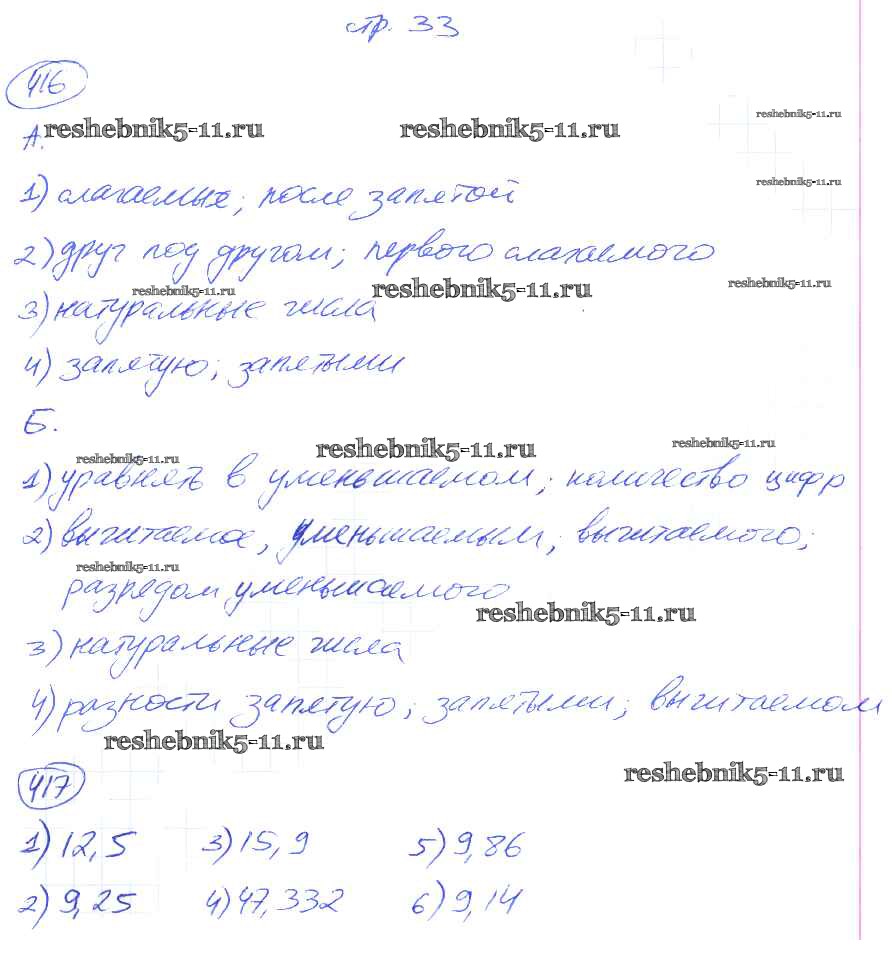 стр. 33
416
reshebnik5-11.ru reshebnik5-11.ru reshebnik5-11.ru
А.
reshebnik5-11.ru
1) слагаемых; после запятой
2) друг под другом; первого слагаемого
reshebnik5-11.ru reshebnik5-11.ru reshebnik5-11.ru
3) натуральные числа
4) запятую; запятыми
Б.
reshebnik5-11.ru reshebnik5-11.ru reshebnik5-11.ru
1) уравнять в уменьшаемом; количество цифр
2) вычитаемое, уменьшаемым; вычитаемого;
reshebnik5-11.ru
разрядом уменьшаемого
reshebnik5-11.ru
3) натуральные числа
4) разности запятую; запятыми; вычитаемом
reshebnik5-11.ru
reshebnik5-11.ru
417
1) 12,5 3) 15,9 5) 9,86
2) 9,25 4) 47,332 6) 9,14